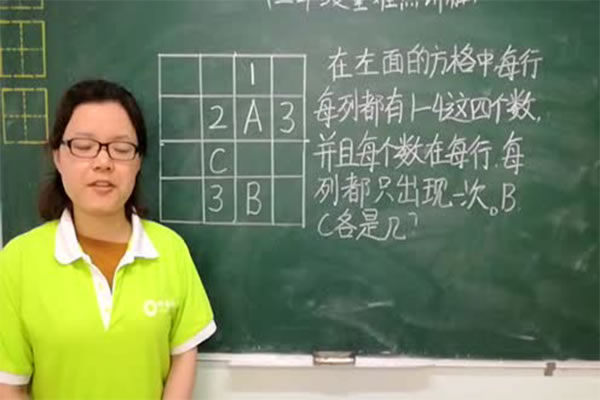 1
2 A 3
C
3 B
在左面的方格中,每行
每列都有1-4这四个数,
并且每个数在每行、每
列都只出现一次。B、
C各是几?